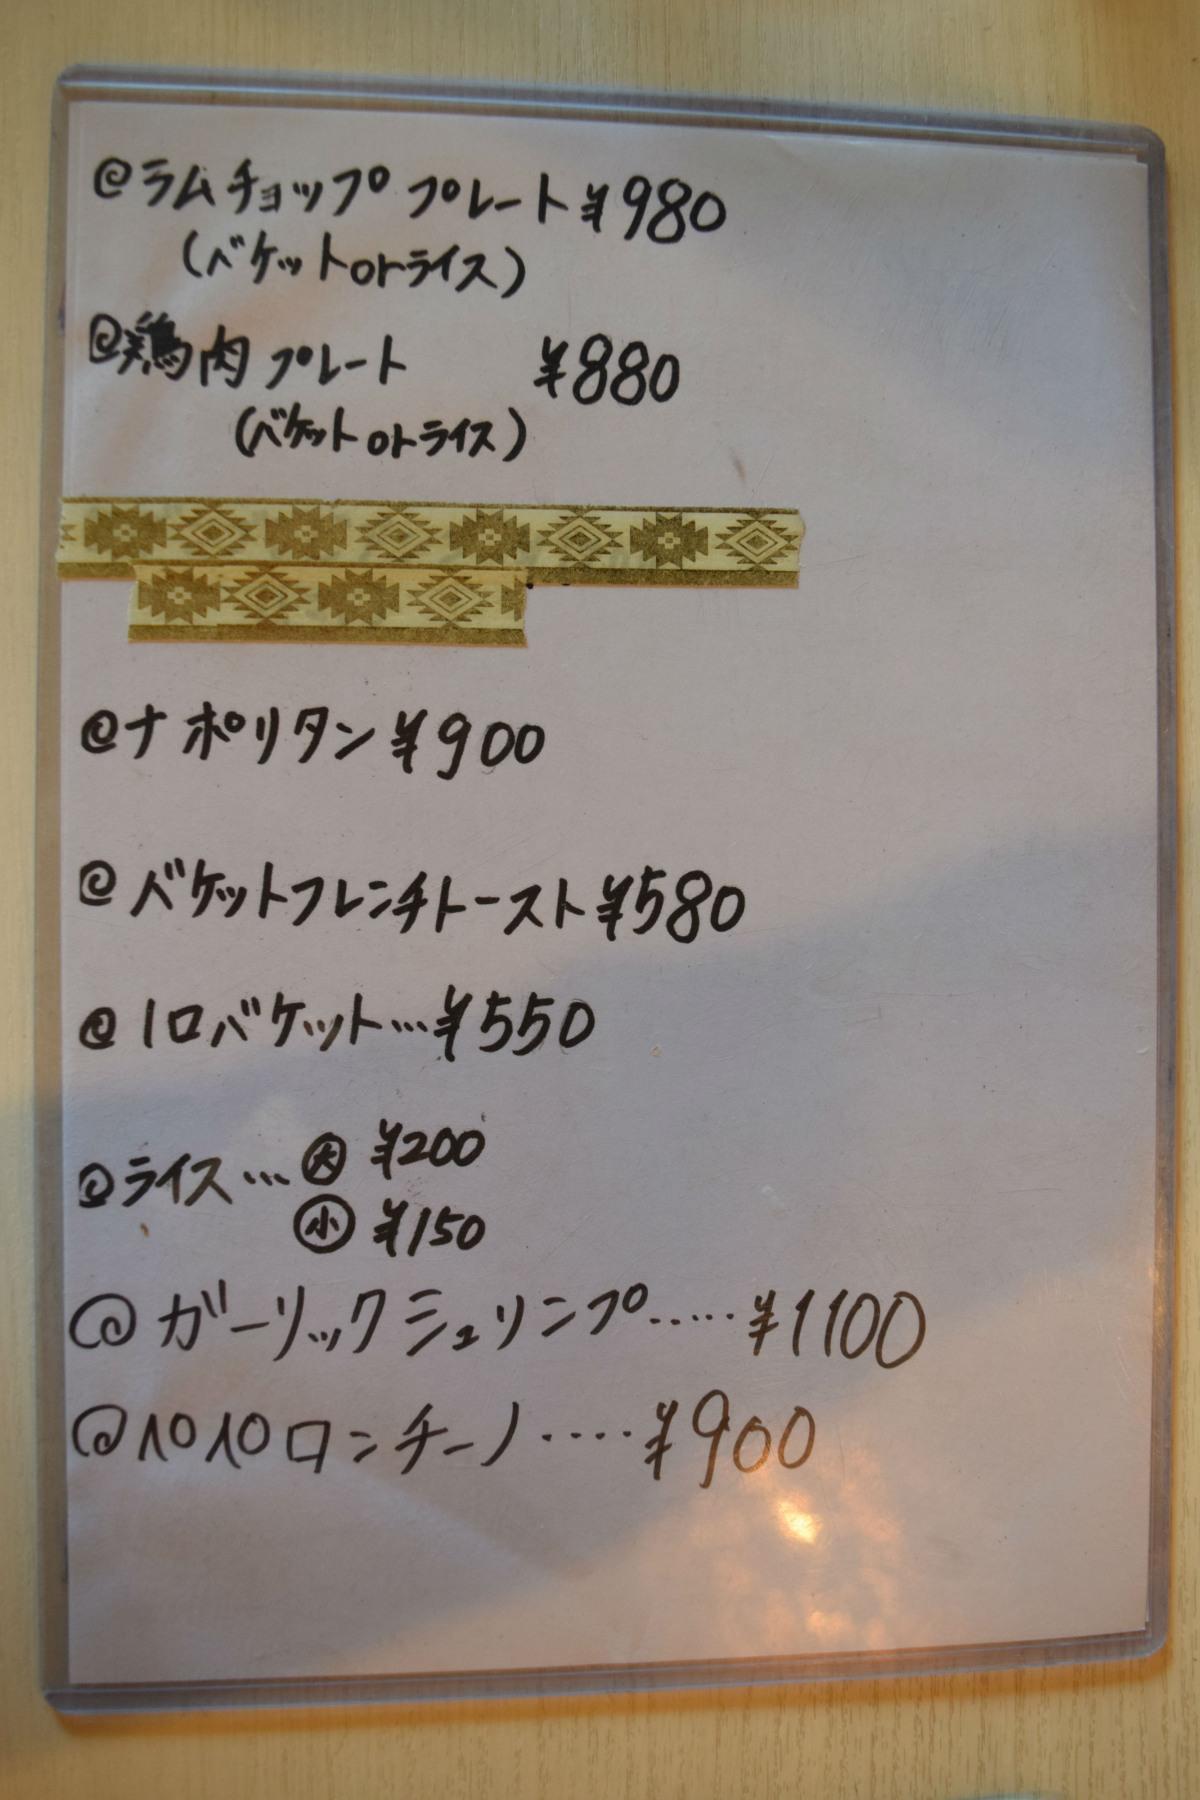 @ラムチョッププレート¥980
(バケットorライス)
@鶏肉プレート ¥880
(バケットorライス)
@ナポリタン¥900
@バケットフレンチトースト¥580
@1口バケット…¥550
@ライス…㊅ ¥200
㊙ ¥150
@ガーリックシュリンプ.....¥1100
@ペペロンチーノ....¥900